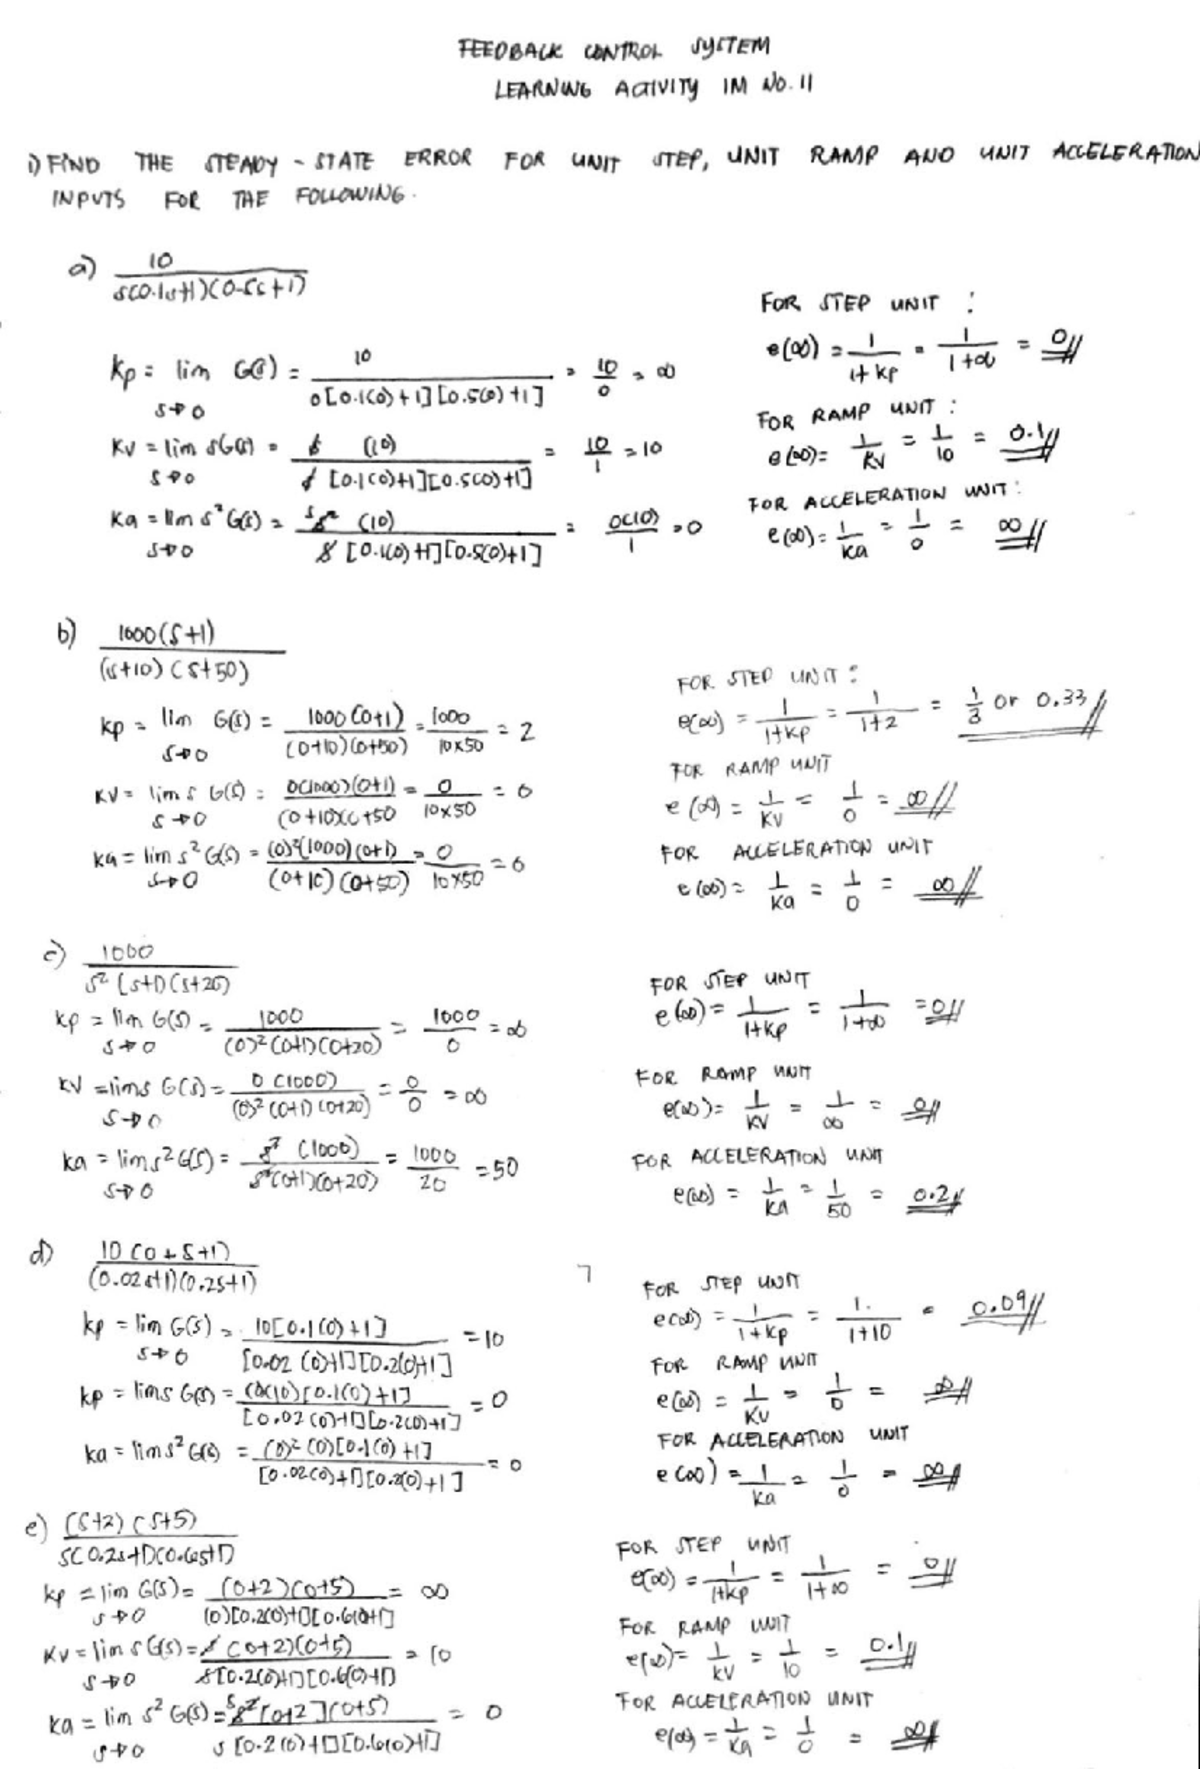 FEEDBACK CONTROL SYSTEM
LEARNING ACTIVITY IM NO. 11
1) FIND THE STEADY - STATE ERROR FOR UNIT STEP, UNIT RAMP AND UNIT ACCELERATION
INPUTS FOR THE FOLLOWING.
a) 10 / s(0.1s+1)(0.5s+1)
Kp = lim s→0 G(s) = 10 / 0[0.1(0)+1][0.5(0)+1] = 10/0 = ∞
Kv = lim s→0 sG(s) = s(10) / s[0.1(0)+1][0.5(0)+1] = 10/1 = 10
Ka = lim s→0 s²G(s) = s s² (10) / s[0.1(0)+1][0.5(0)+1] = 0(10)/1 = 0
FOR STEP UNIT :
e(∞) = 1/1+Kp = 1/1+∞ = 0
FOR RAMP UNIT :
e(∞) = 1/Kv = 1/10 = 0.1
FOR ACCELERATION UNIT :
e(∞) = 1/Ka = 1/0 = ∞
b) 1000(s+1) / (s+10)(s+50)
Kp = lim s→0 G(s) = 1000(0+1) / (0+10)(0+50) = 1000 / 10x50 = 2
Kv = lim s→0 s G(s) = 0(1000)(0+1) / (0+10)(0+50 = 0 / 10x50 = 0
Ka = lim s→0 s² G(s) = (0)²(1000)(0+1) / (0+10)(0+50) = 0 / 10x50 = 0
FOR STEP UNIT :
e(∞) = 1/1+Kp = 1/1+2 = 1/3 or 0.33
FOR RAMP UNIT
e(∞) = 1/Kv = 1/0 = ∞
FOR ACCELERATION UNIT
e(∞) = 1/Ka = 1/0 = ∞
c) 1000 / s²(s+1)(s+20)
Kp = lim s→0 G(s) = 1000 / (0)²(0+1)(0+20) = 1000/0 = ∞
Kv = lim s→0 s G(s) = 0(1000) / (0)²(0+1)(0+20) = 0/0 = ∞
Ka = lim s→0 s² G(s) = s²(1000) / s²(0+1)(0+20) = 1000/20 = 50
FOR STEP UNIT
e(∞) = 1/1+Kp = 1/1+∞ = 0
FOR RAMP UNIT
e(∞) = 1/Kv = 1/∞ = 0
FOR ACCELERATION UNIT
e(∞) = 1/Ka = 1/50 = 0.2
d) 10(0+s+1) / (0.02s+1)(0.2s+1)
Kp = lim s→0 G(s) = 10[0.1(0)+1] / [0.02(0)+1][0.2(0)+1] = 10
Kp = lim s G(s) = (0)(10)[0.1(0)+1] / [0.02(0)+1][0.2(0)+1] = 0
Ka = lim s² G(s) = (0)²(0)[0.1(0)+1] / [0.02(0)+1][0.2(0)+1] = 0
FOR STEP UNIT
e(∞) = 1/1+Kp = 1./1+10 = 0.09
FOR RAMP UNIT
e(∞) = 1/Kv = 1/0 = ∞
FOR ACCELERATION UNIT
e(∞) = 1/Ka = 1/0 = ∞
e) (s+2)(s+5) / s(0.2s+1)(0.6s+1)
Kp = lim s→0 G(s) = (0+2)(0+5) / (0)[0.2(0)+1][0.6(0)+1] = ∞
Kv = lim s→0 s G(s) = s(0+2)(0+5) / s[0.2(0)+1][0.6(0)+1] = 10
Ka = lim s→0 s² G(s) = s s²[0+2](0+5) / s[0.2(0)+1][0.6(0)+1] = 0
FOR STEP UNIT
e(∞) = 1/1+Kp = 1/1+∞ = 0
FOR RAMP UNIT
e(∞) = 1/Kv = 1/10 = 0.1
FOR ACCELERATION UNIT
e(∞) = 1/Ka = 1/0 = ∞